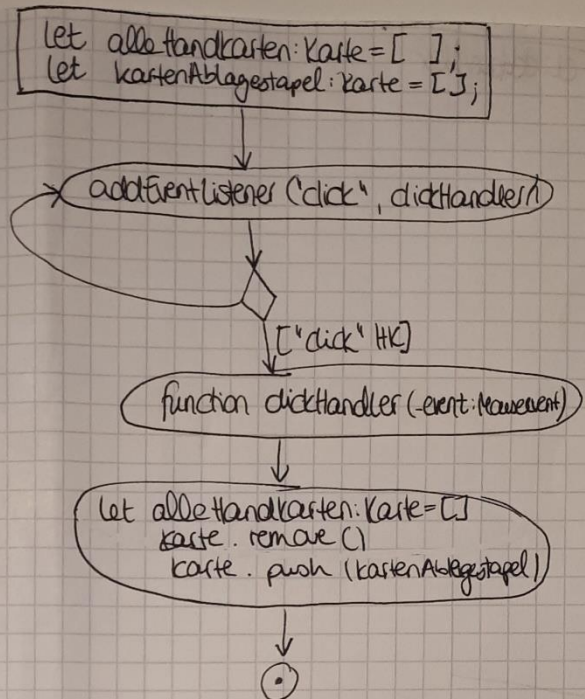 let alleHandkarten: Karte = [ ];
let kartenAblagestapel: Karte = [];
addEventListener ("click", clickHandler)
["click" HK]
function clickHandler (-event: Mouseevent)
let alleHandkarten: Karte = []
karte. remove ()
karte. push (kartenAblagestapel)